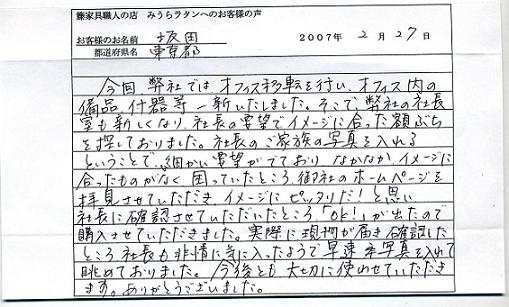 籐家具職人の店 みうらラタンへのお客様の声
お客様のお名前 坂田 2007年 2月 27日
都道府県名 東京都
今回弊社では、オフィス移転を行い、オフィス内の
備品什器等一新いたしました。そこで、弊社の社長
室も新しくなり、社長の要望でイメージに合った額ぶち
を探しておりました。社長のご家族の写真を入れる
ということで、細かい要望がでており、なかなか、イメージに
合ったものがなく困っていたところ、御社のホームページを
拝見させていただき、イメージにピッタリだ!と思い
社長に確認させていただいたところ「OK!」が出たので
購入させていただきました。実際に現物が届き確認した
ところ社長も非情に気に入ったようで早速写真を入れて
眺めておりました。今後とも大切に使わせていただき
ます。ありがとうございました。